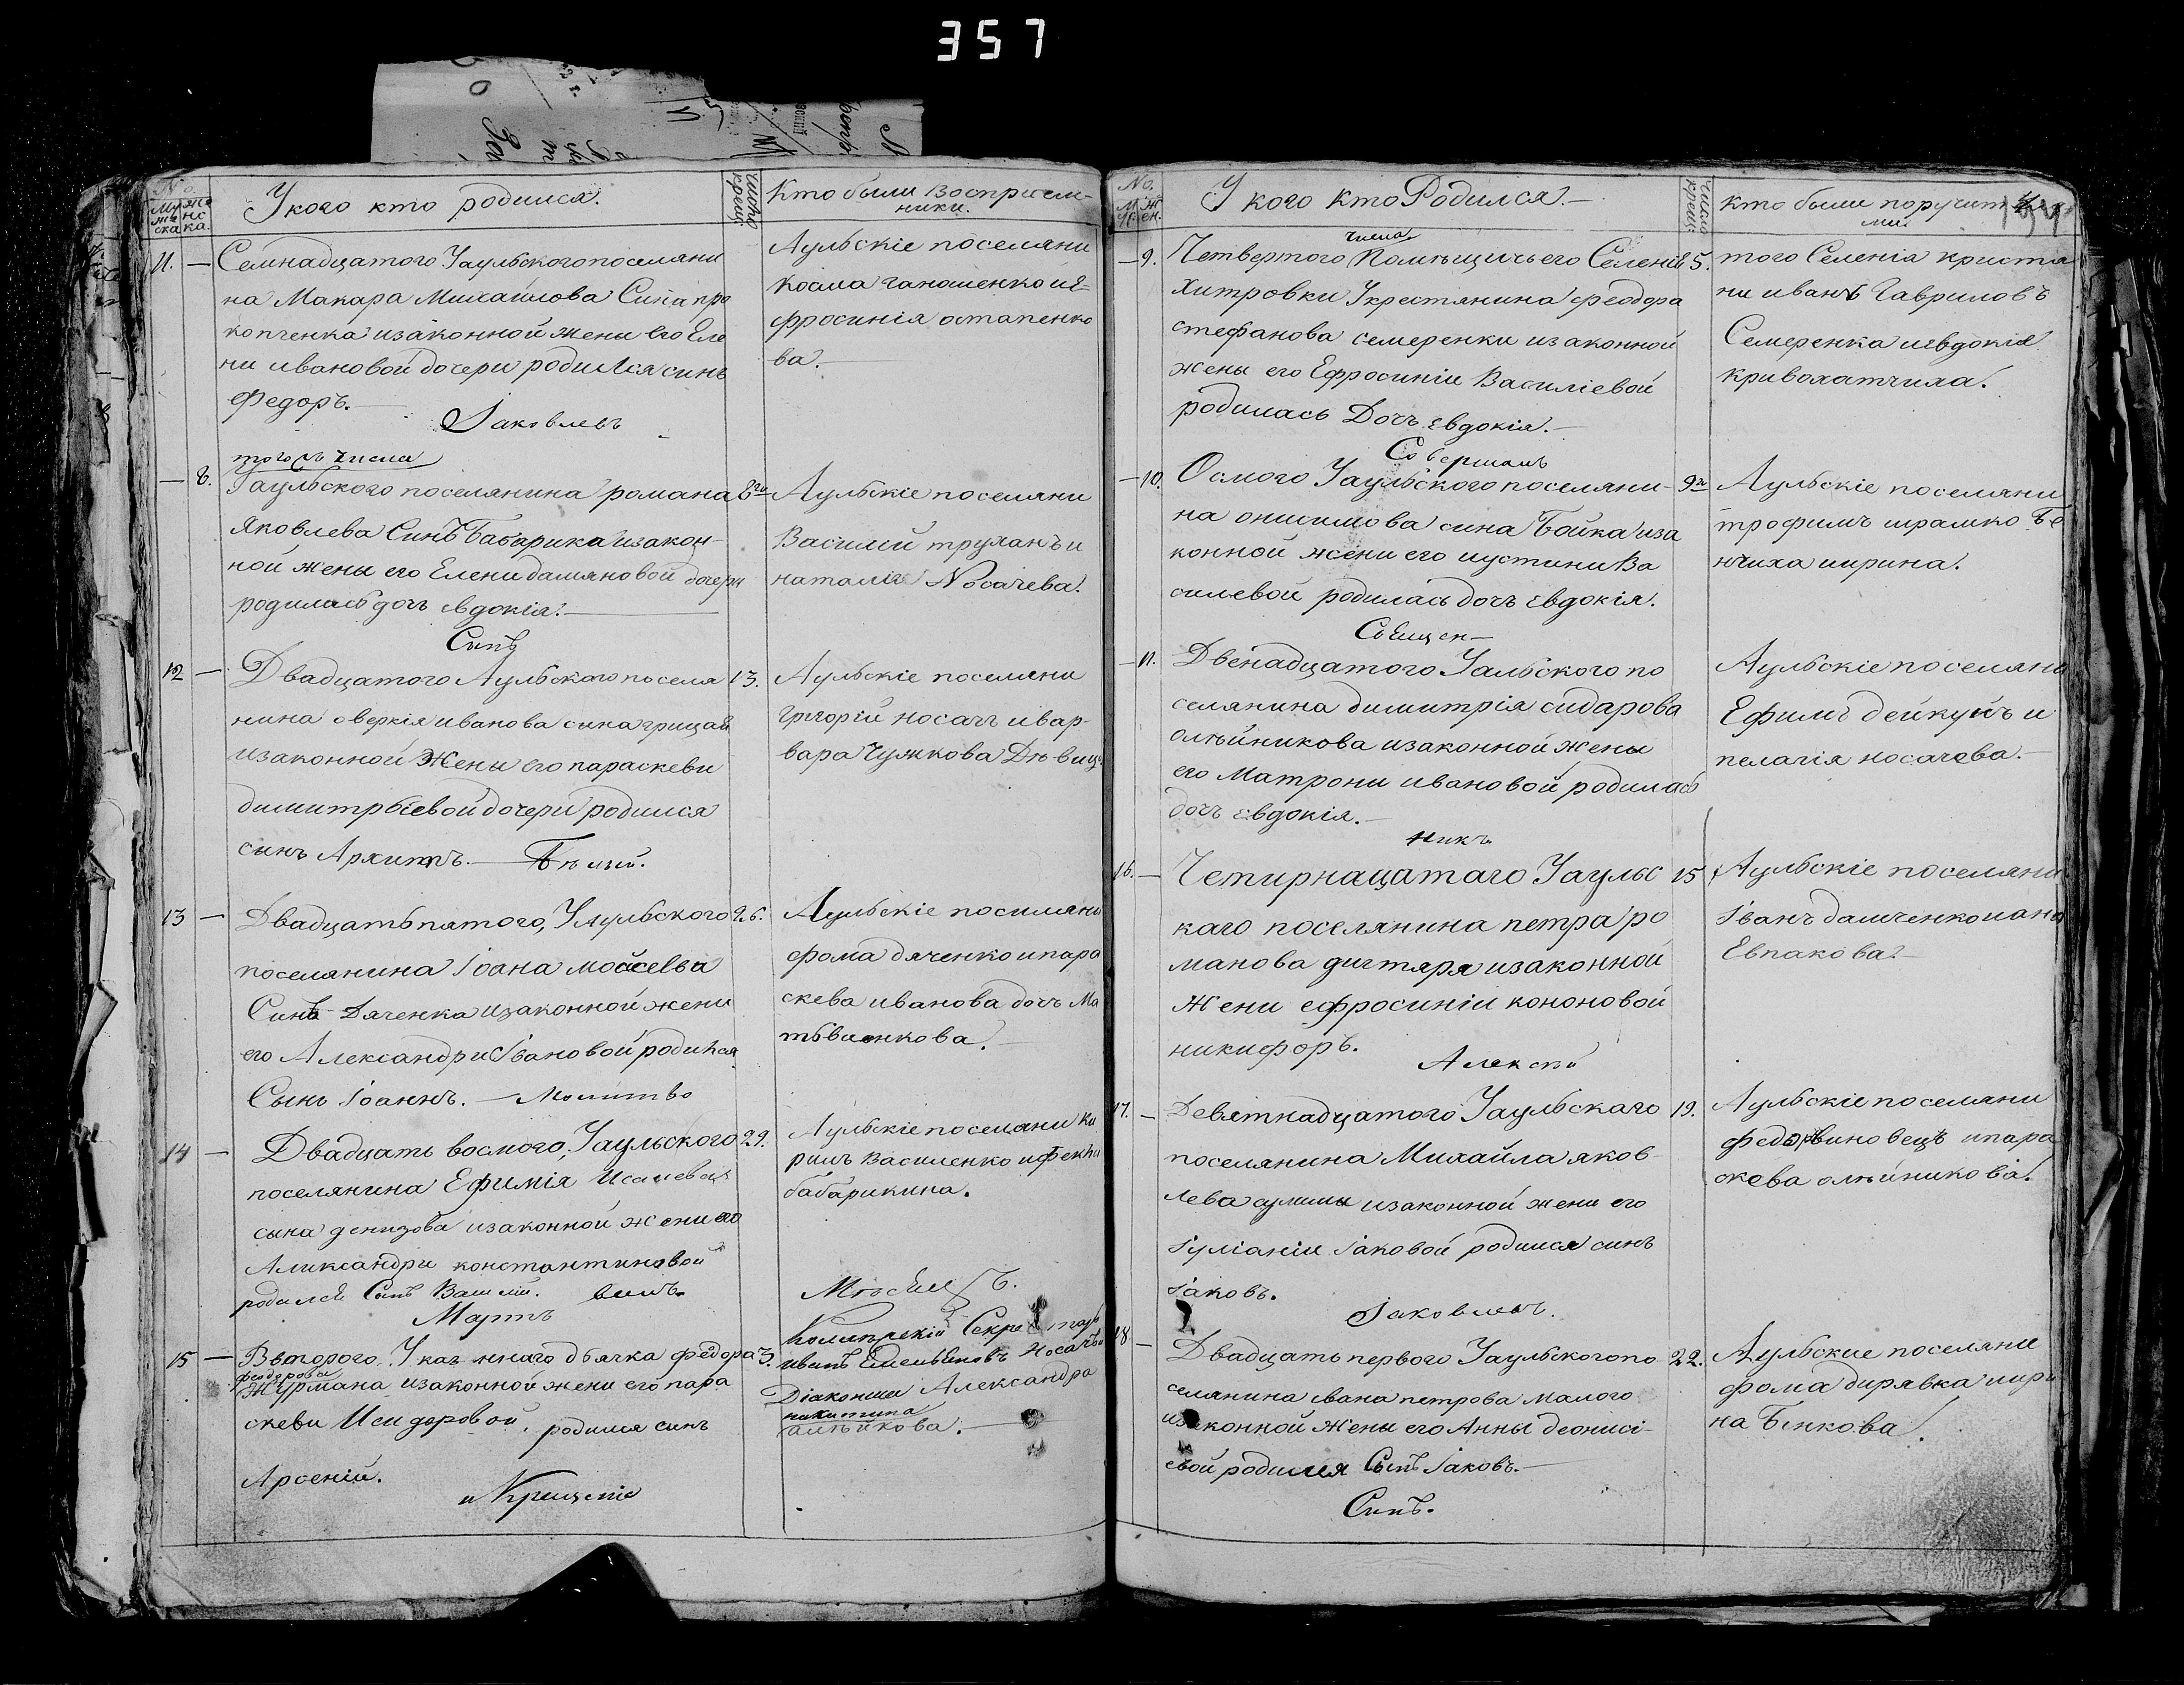 357
№
Муже
ска
женс
ка.
У кого кто родился.
число
крещ:
Кто были восприем-
ники.
11. — Семнадцатого Уаульского поселяни
на Макара Михайлова Сина про
копченка изаконной жени его Еле
ни ивановой дочери родился синъ
Федоръ.
Iаковлевъ
Аульскіе поселяни
Косма
фросинія остапенко
ва.
того съ числа
— 8. Уаульского поселянина романа 8го
Яковлева Синъ Бабарика изакон-
ной жены его Елени дамяновой дочери
родилась дочъ евдокія.
Синъ
Аульскіе поселяни
Василий труханъ и
наталія Носачева.
12 — Двадцатого Аульского поселя 13.
нина оверкія иванова сина грицай
изаконной Жены его параскеви
димитріевой дочери родился
синъ Архипъ. — Бѣлый.
Аульскіе поселяни
григорій носачъ и вар-
вара Чумкова Дѣвица
13 — Двадцать пятого, Уаульского 26.
поселянина Iоана мойсеева
Синъ Дяченка изаконной жени
его Александри Iвановой родился
Сынъ Iоаннъ. — Молитво
Аульскіе поселяны
фома дяченко и пара
скева иванова дочъ Ма
твіенкова.
14 — Двадцать восмого, Уаульского 29.
поселянина Ефимія
сына денизова изаконной жени его
Александри константиновой
родился Синъ Василій.
Мартъ
Аульскіе поселяни ки
рилъ Василенко и Фекла
бабарикина.
15 — Второго. У дьячка федора 3.
феодорова
Журмана изаконной жени его пара
скеви Исидоровой, родился синъ
Арсеній.
и Крещеніе
Мѣсяцъ.
Колежскій Секретарь
иванъ Емельяновъ Носачъ и
Діаконша Александра
никитина
№
Муж
Жен.
У кого Кто Родился.
число
крещ:
Кто были поручите
ли.
числа
— 9. Четвертого Помѣщичьего Селенія 5.
Хитровки Украстянина феодора
стефанова семеренки изаконной
жены его Ефросиніи Василіевой
родилась Дочъ евдокія.
Совершалъ
того Селенія кристя
ни иванъ Гавриловъ
Семеренка и евдокія
кривохатчиха.
— 10. Осмого Уаульского поселяни 9го
на онисимова сина Бойка иза
конной жени его иустини Ва
силевой родилась дочъ евдокія.
Священ-
Аульскіе поселяни
трофимъ шрамко Бе
нчиха ирина.
— 11. Двенадцатого Уальского по
селянина димитрія сидарова
олѣйникова изаконной жены
его Матрони ивановой родилась
дочъ евдокія.
никъ
Аульскіе поселяни
Ефимъ дейкунъ и
пелагія носачова.
16. — Четирнацатаго Уаульс 15
каго поселянина петра ро
манова дигтяря изаконной
Жени ефросиніи кононовой
никифоръ.
Алексѣй
Аульскіе поселяни
Iванъ дашченко и ана
Евпакова.
17. — Девятнадцатого Уаульскаго 19.
поселянина Михайла яков-
лева сулимы изаконной жени его
Iуліаніи Iаковой родился синъ
Iаковъ.
Iаковлевъ.
Аульскіе поселяни
федорвиновецъ и пара
скева олѣйникова.
18 — Двадцать первого Уаульского по 22.
селянина ивана петрова малого
изаконной Жены его Анны деониси-
евой родился Синъ Iаковъ.
Синъ.
Аульские поселяни
фома дирявка и ири
на Бенкова.